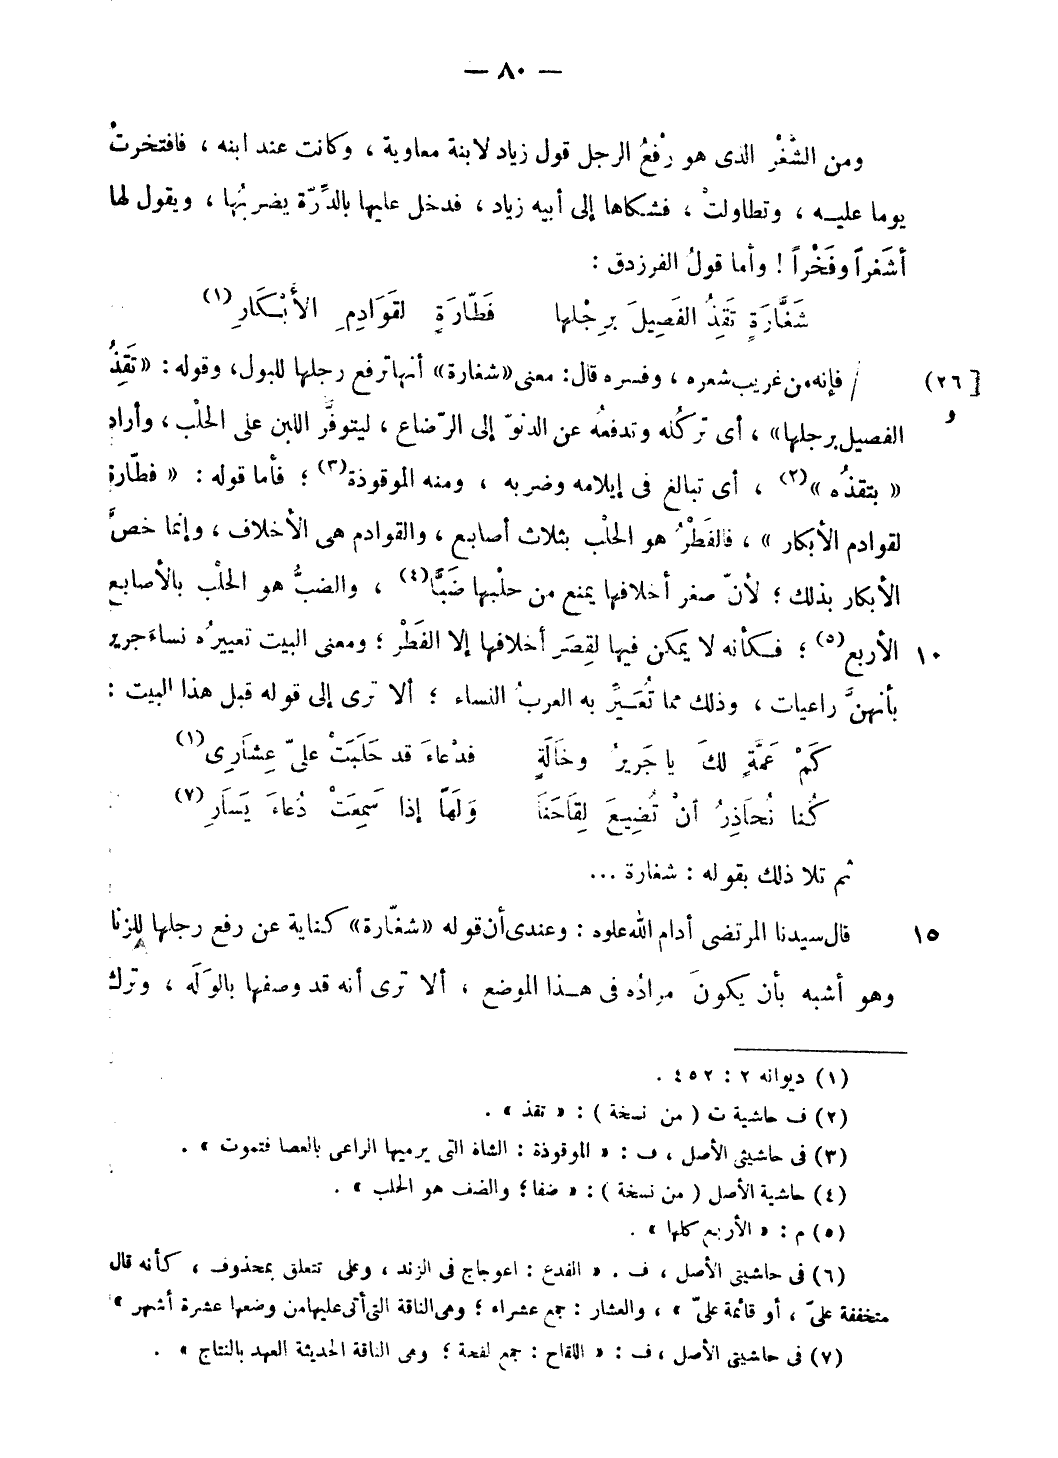 — ٨٠ —
ومن الشَّغْر الذى هو رفْعُ الرجل قول زياد لابنة معاوية ، وكانت عند ابنه ، فافتخرتْ
يوما عليـه ، وتطاولتْ ، فشكاها إلى أبيه زياد ، فدخل عليها بالدِّرّة يضربُها ، ويقول لها
أشَغراً وفَخْراً ! وأما قولُ الفرزدق :
شَغَّارَةٍ تَقِذُ الفَصِيلَ برِجْلها فَطّارَةٍ لقَوَادِمِ الأَبْكَارِ(١)
[(٢٦) / فإنه من غريب شعره ، وفسره قال : معنى «شغارة» أنها ترفع رجلها للبول، وقوله : «تَقِذُ
و
الفصيل برجلها» ، أى تركُله وتدفعهُ عن الدنوّ إلى الرّضاع ، ليتوفَّر اللبن على الحلْب ، وأراد
« بتقذُه »(٢) ، أى تبالغ فى إيلامه وضربه ، ومنه الموقوذة(٣) ؛ فأما قوله : « فطّارة
لقوادم الأبكار » ، فالفَطْرُ هو الحلْب بثلاث أصابع ، والقوادم هى الأخلاف ، وإنما خصَّ
الأبكار بذلك ؛ لأنّ صغر أخلافها يمنع من حلْبها ضَبًّا(٤) ، والضبُّ هو الحلْب بالأصابع
١٠ الأربع(٥) ؛ فـكأنه لا يمكن فيها لقِصَر أخلافها إلا الفَطْر ؛ ومعنى البيت تعييرُه نساءَ جرير
بأنهنَّ راعيات ، وذلك مما تُعَـيِّر به العربُ النساء ؛ ألا ترى إلى قوله قبل هذا البيت :
كَمْ عَمَّةٍ لكَ يا جَريرُ وخَالَةٍ فدْعاءَ قد حَلَبَتْ علىّ عِشَارِى(٦)
كُنا نُحَاذِرُ أنْ تُضِيعَ لِقَاحَنَا وَلَهًا إذا سَمِعَتْ دُعاءَ يَسَارِ(٧)
ثم تلا ذلك بقوله : شغارة ...
١٥ قال سيدنا المرتضى أدام الله علوه : وعندى أن قوله «شغّارة» كناية عن رفع رجلها للزنا
وهو أشبه بأن يكونَ مرادُه فى هـذا الموضع ، ألا ترى أنه قد وصفها بالوَلَه ، وترك
(١) ديوانه ٢ : ٤٥٢ .
(٢) ف حاشية ت ( من نسخة ) : « تقذ » .
(٣) فى حاشيتى الأصل ، ف : « الموقوذة : الشاة التى يرميها الراعى بالعصا فتموت » .
(٤) حاشية الأصل ( من نسخة ) : « ضفا؛ والضف هو الحلب » .
(٥) م : « الأربع كلها » .
(٦) فى حاشيتى الأصل ، ف . « الفدع : اعوجاج فى الزند ، وعلى تتعلق بمحذوف ، كأنه قال
متخففة علىّ ، أو قائمة علىّ » ، والعشار : جمع عشراء ؛ وهى الناقة التى أتى عليها من وضعها عشرة أشهر »
(٧) فى حاشيتى الأصل ، ف : « اللقاح : جمع لقحة ؛ وهى الناقة الحديثة العهد بالنتاج » .